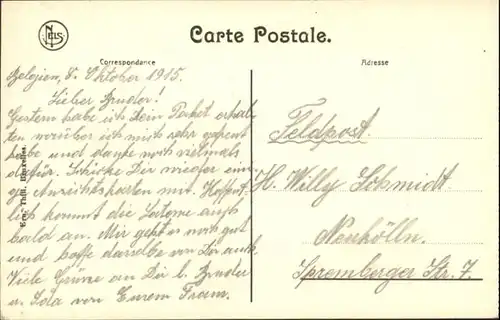 NELS
Carte Postale.
Correspondance
Adresse
Belgien, 8. Oktober 1915.
Lieber Bruder!
Gestern habe ich Dein Packet erhal-
ten worüber ich mich sehr gefreut
habe und danke noch vielmals
dafür. Schicke Dir wieder ein
ige Ansichtskarten mit. Hoffent
lich kommt die Laterne auch
bald an. Mir geht es noch gut
und hoffe dasselbe von Dir auch.
Viele Grüsse an Dir l. Bruder
u. Ida von Eurem Franz.
Feldpost.
H. Willy Schmidt.
Neukölln.
Spremberger Str. 7.
Ern. Thill, Bruxelles.